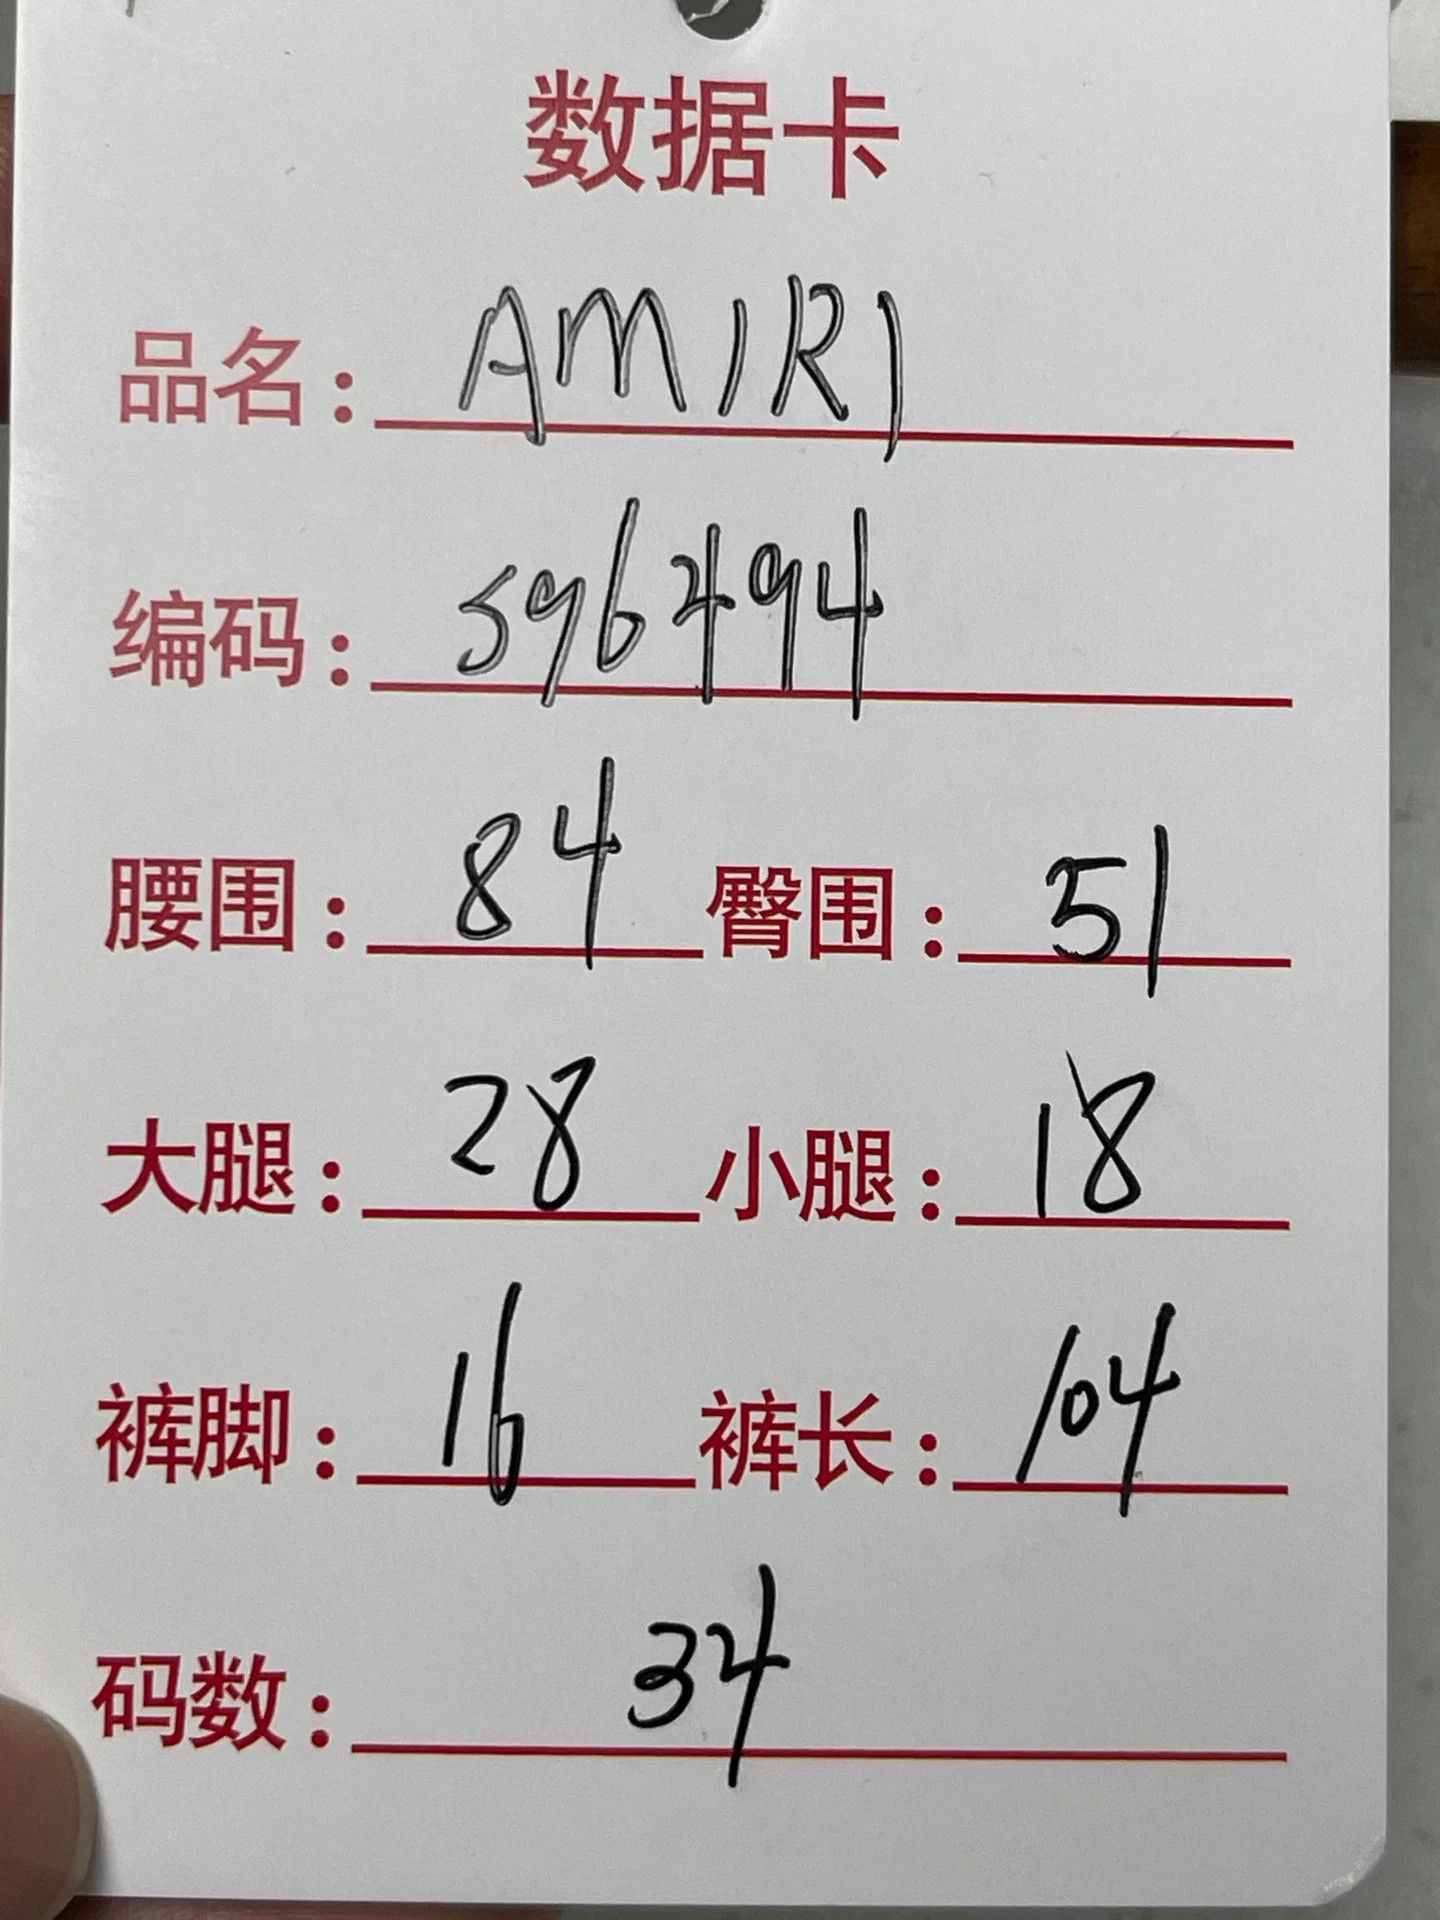 数据卡
品名: AMIRI
编码: 596494
腰围: 84 臀围: 51
大腿: 28 小腿: 18
裤脚: 16 裤长: 104
码数: 34